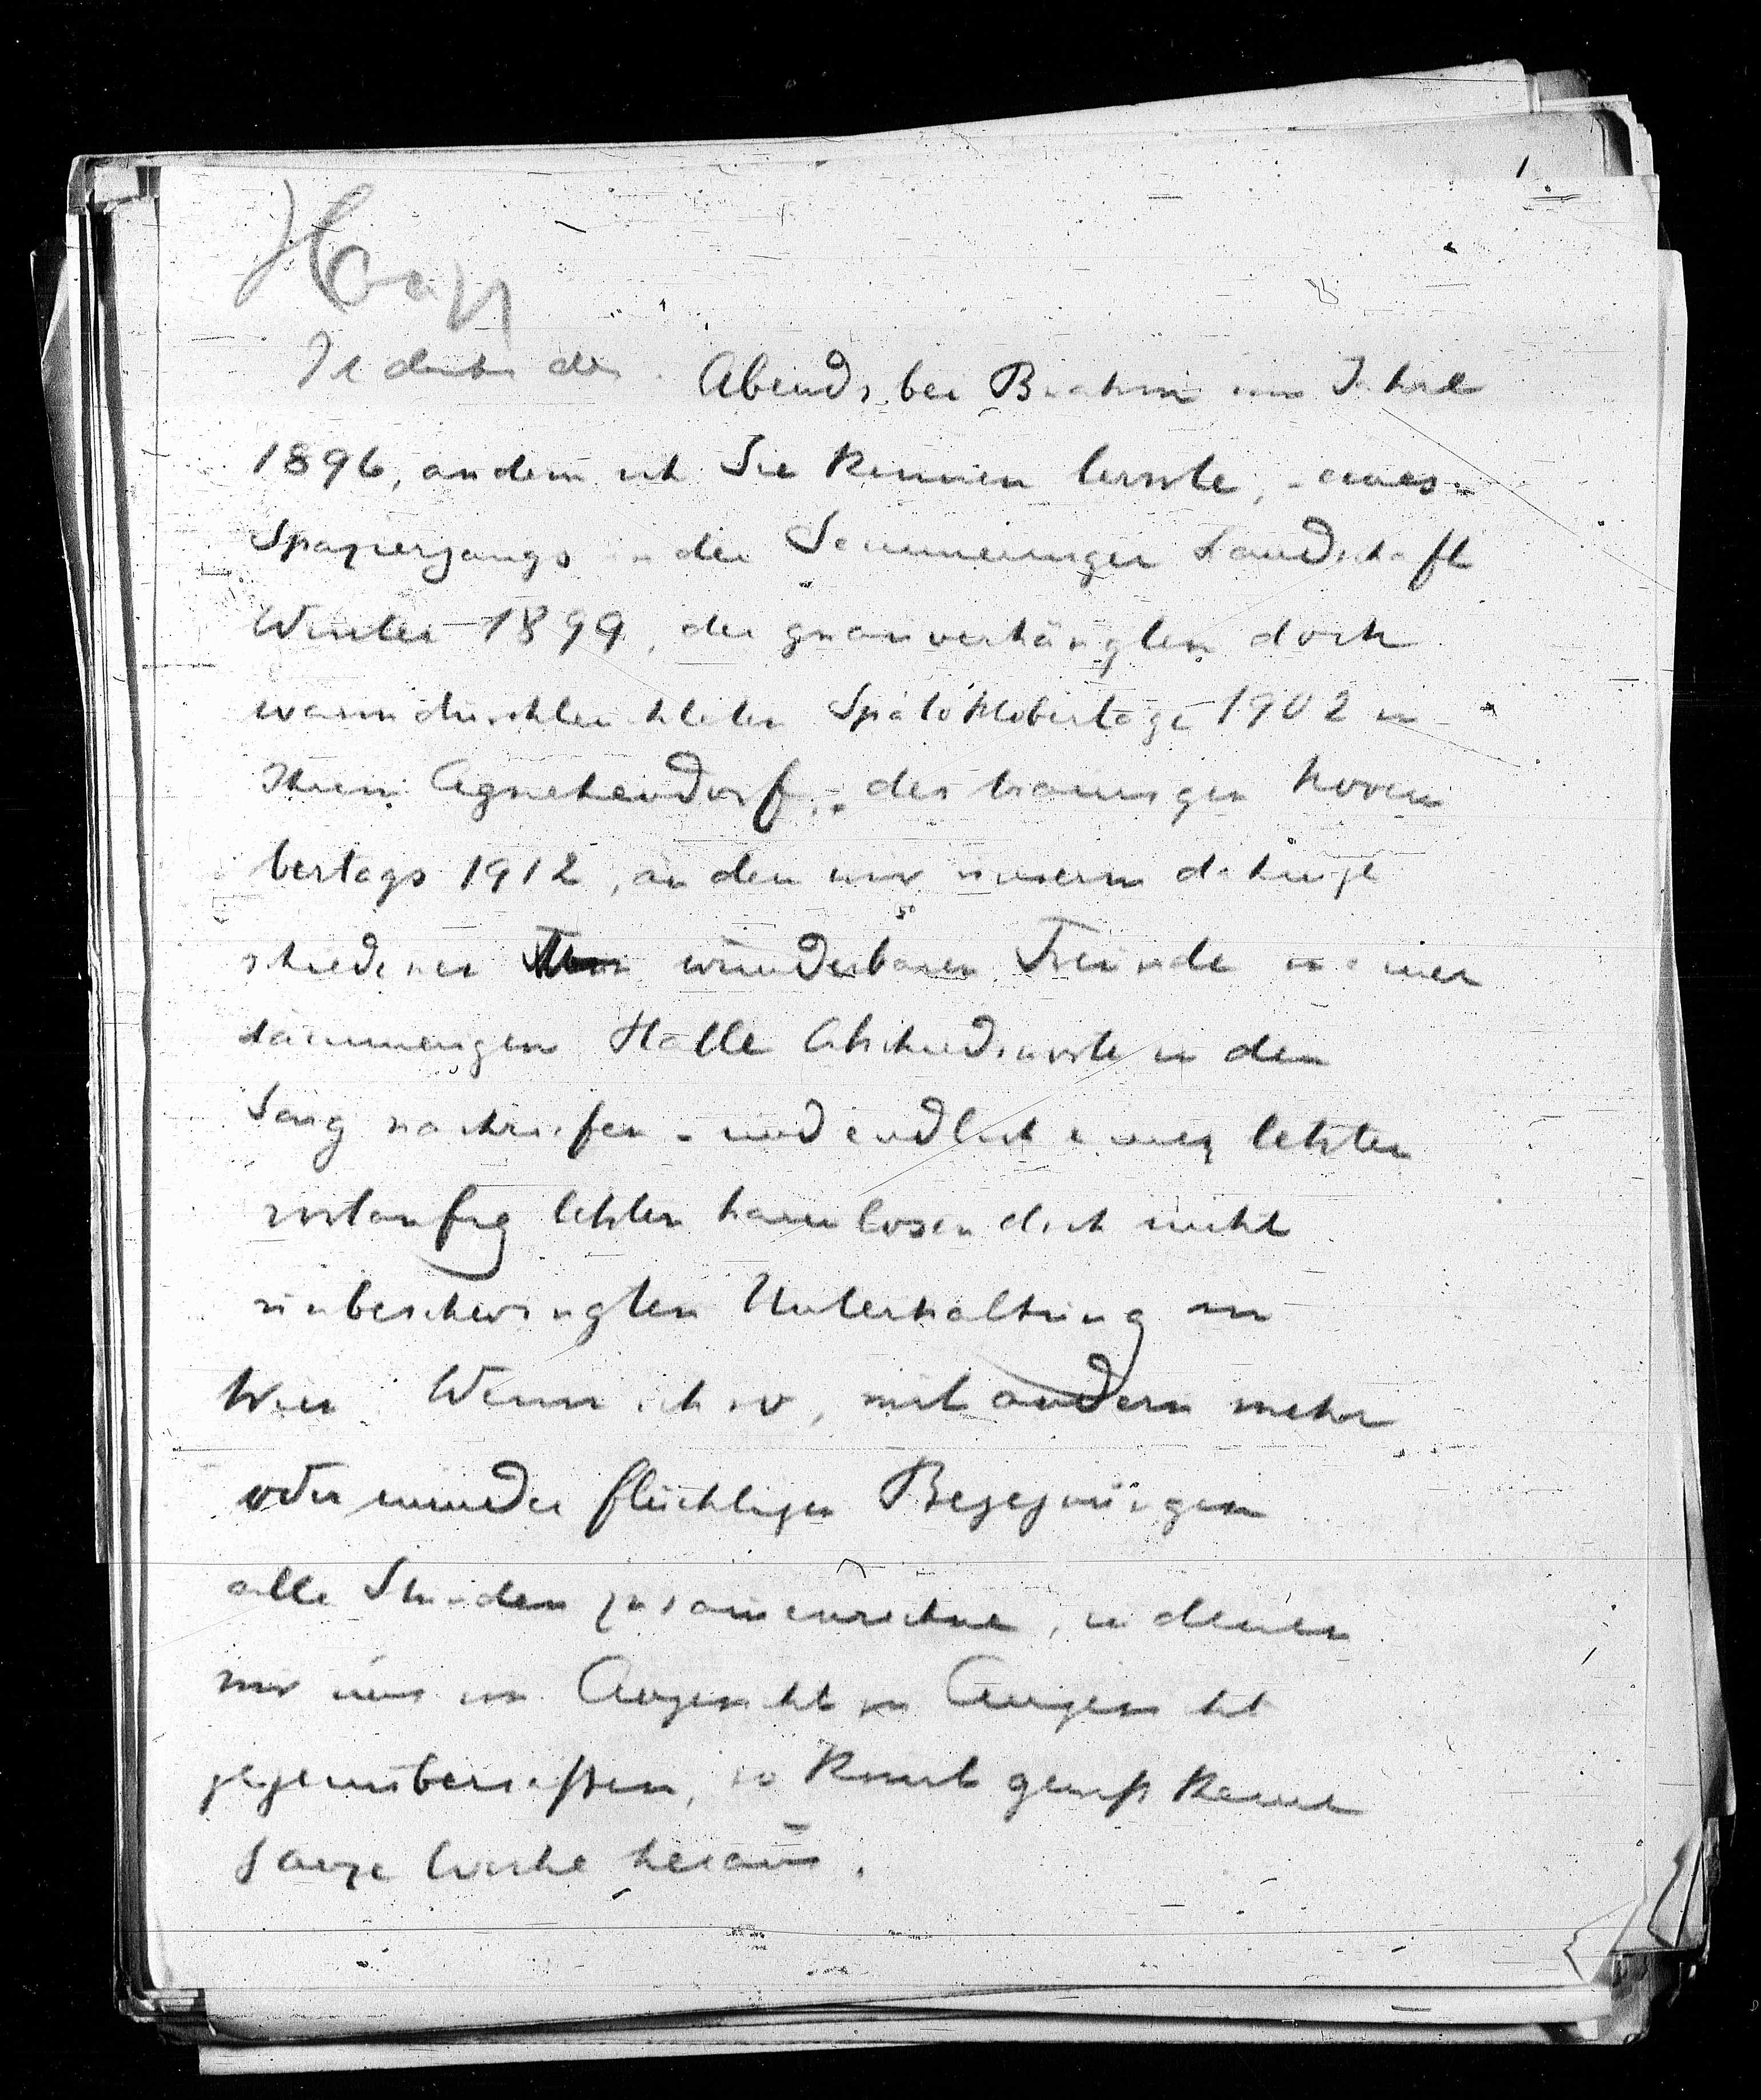 1
Ich denke des Abends bei Brahm im Jahre
1896, an dem ich Sie kennen lernte, - eines
Spaziergangs in der Semmeringer Landschaft
Winter 1899, der grauverhängten doch
warmdurchleuchteten Spätoktobertage 1902 in
Ihrem Agnetendorf, - des traurigen Novem
bertags 1912, an dem wir unserm dahinge
schiedenen wunderbaren Freunde in einer
dämmerigen Halle Abschiedsworte in den
Sarg nachriefen - und endlich einer letzten
vorläufig letzten harmlosen doch nicht
unbeschwingten Unterhaltung in
Wien. Wenn ich so, mit andern mehr
oder minder flüchtigen Begegnungen
alle Stunden zusammenrechne, in denen
wir uns von Angesicht zu Angesicht
gegenübersassen, so kommt gewiss keine
ganze Woche heraus.